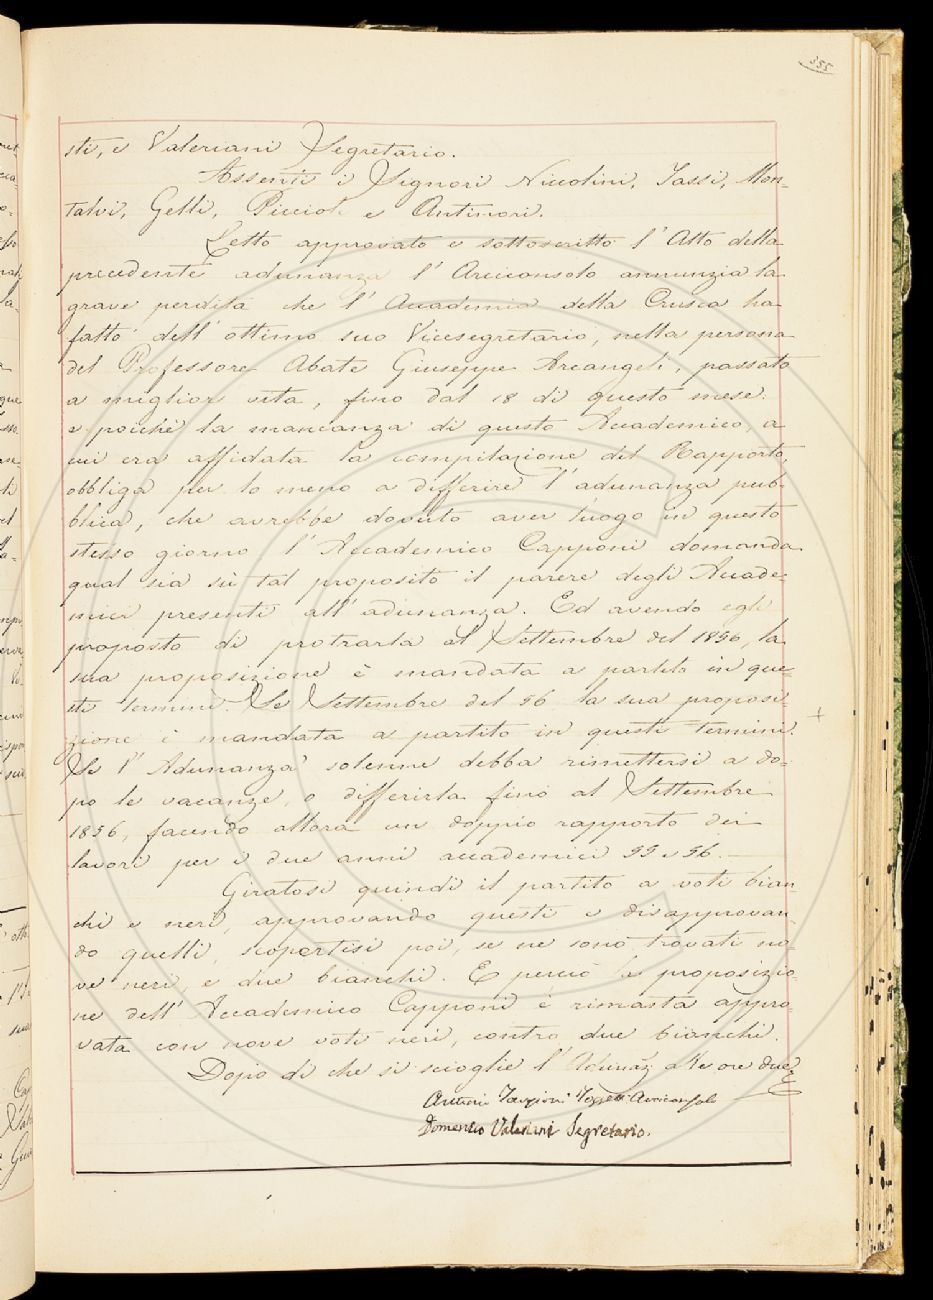 355
sti, e Valeriani Segretario.
Assenti i Signori Niccolini, Tassi, Mon-
talvi, Gelli, e Antinori.
Letto approvato e sottoscritto l' Atto della
precedente adunanza l' Arciconsolo annunzia la
grave perdita che l' Accademia della Crusca ha
fatto dell' ottimo suo Vicesegretario, nella persona
del Professore Abate Giuseppe Arcangeli, passato
a miglior vita, fino dal 18 di questo mese:
e poichè la mancanza di questo Accademico, a
cui era affidata la compilazione del Rapporto,
obbliga per lo meno a differire l' adunanza pub-
blica, che avrebbe dovuto aver luogo in questo
stesso giorno l' Accademico Capponi domanda
qual sia sù tal proposito il parere degli Accade-
mici presenti all' adunanza. Ed avendo egli
proposto di protrarla al Settembre del 1856, la
sua proposizione è mandata a partito in que-
sti termini. Se Settembre del 56 la sua proposi-
zione è mandata a partito in questi termini.
Se l' Adunanza solenne debba rimettersi a do-
po le vacanze, o differirla fino al Settembre
1856, facendo allora un doppio rapporto dei
lavori per i due anni accademici 55 e 56. —
Giratosi quindi il partito a voti bian-
chi e neri, approvando questi e disapprovan-
do quelli, scopertisi poi, se ne sono trovati no-
ve neri, e due bianchi. E perciò la proposizio-
ne dell' Accademico Capponi è rimasta appro-
vata con nove voti neri, contro due bianchi.
Dopo di che si scioglie l' Adunaz alle ore due
Antonio Targioni Tozzetti Arciconsolo
Domenico Valeriani Segretario.